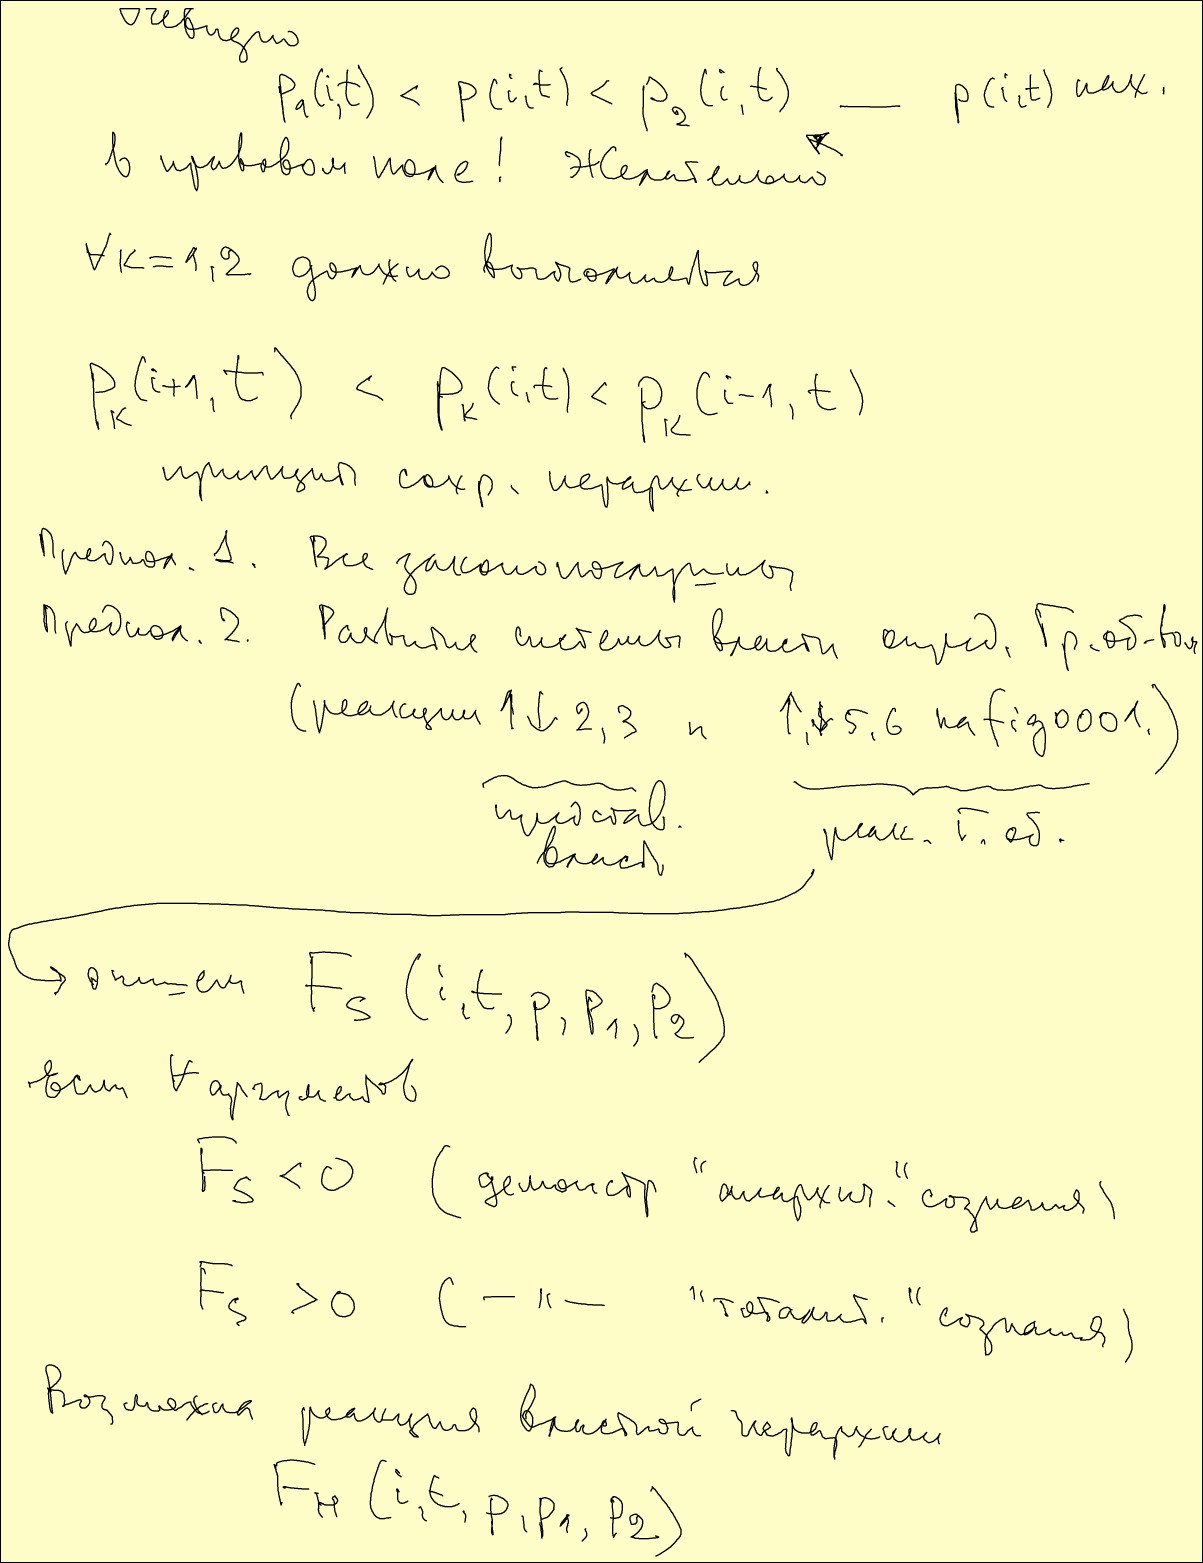 очевидно
p₁(i,t) < p(i,t) < p₂(i,t) — p(i,t) нах.
в правовом поле! Желательно
∀к=1,2 должно выполняться
p_к(i+1,t) < p_к(i,t) < p_к(i-1,t)
принцип сохр. иерархии.
Предпол. 1. Все законопослушны
Предпол. 2. Развитие системы власти опред. Гр.об-вом
(реакции ↑↓ 2,3 и ↑,↓ 5,6 на fig0001.)
представ. реак. Г. об.
власть
→ опишем F_S (i,t, p, p₁, p₂)
если ∀ аргументов
F_S < 0 ( демонстр "анархич." сознания)
F_S > 0 ( — " — "тоталит." сознания)
Возможна реакция властной иерархии
F_H (i,t, p, p₁, p₂)